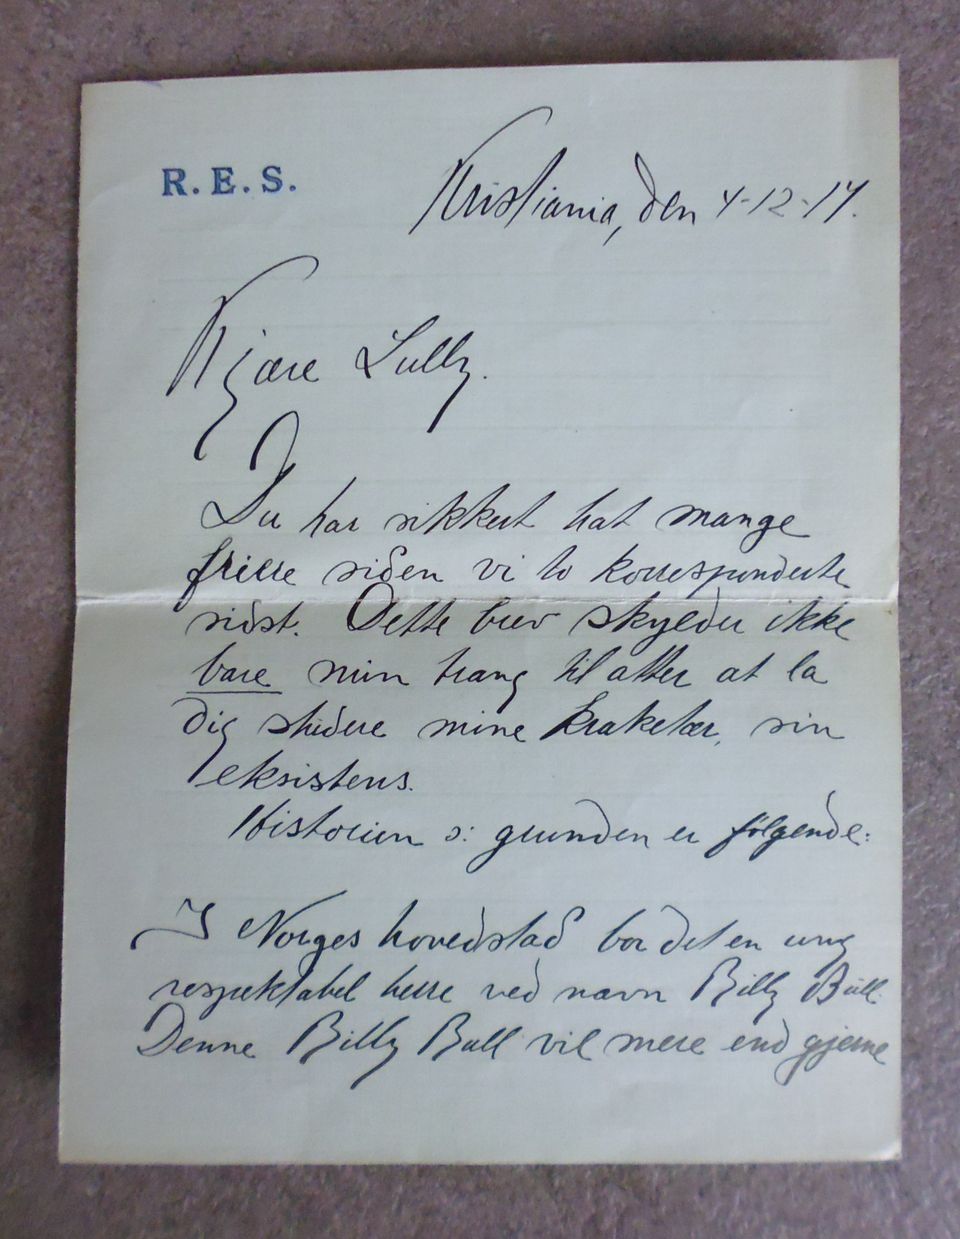 R.E.S.
Kristiania, den 4-12-14.
Kjære Lully.
Du har sikkert hat mange
friere siden vi to korresponderte
sidst. Dette brev skylder ikke
bare min trang til atter at la
dig studere mine kraketær, sin
eksistens.
Historien ɔ: grunden er følgende:
I Norges hovedstad bor det en ung
respektabel herre ved navn Billy Bull.
Denne Billy Bull vil mere end gjerne